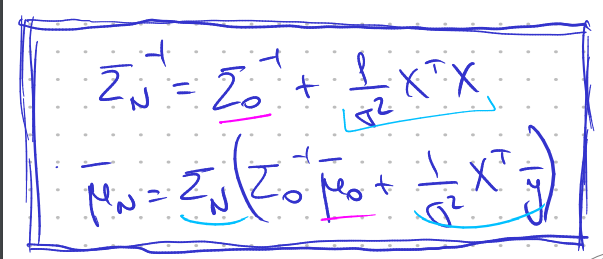 Σ̄_N⁻¹ = Σ̄₀⁻¹ + 1/σ² XᵀX
μ̄_N = Σ̄_N(Σ̄₀⁻¹ μ̄₀ + 1/σ² Xᵀ ȳ)